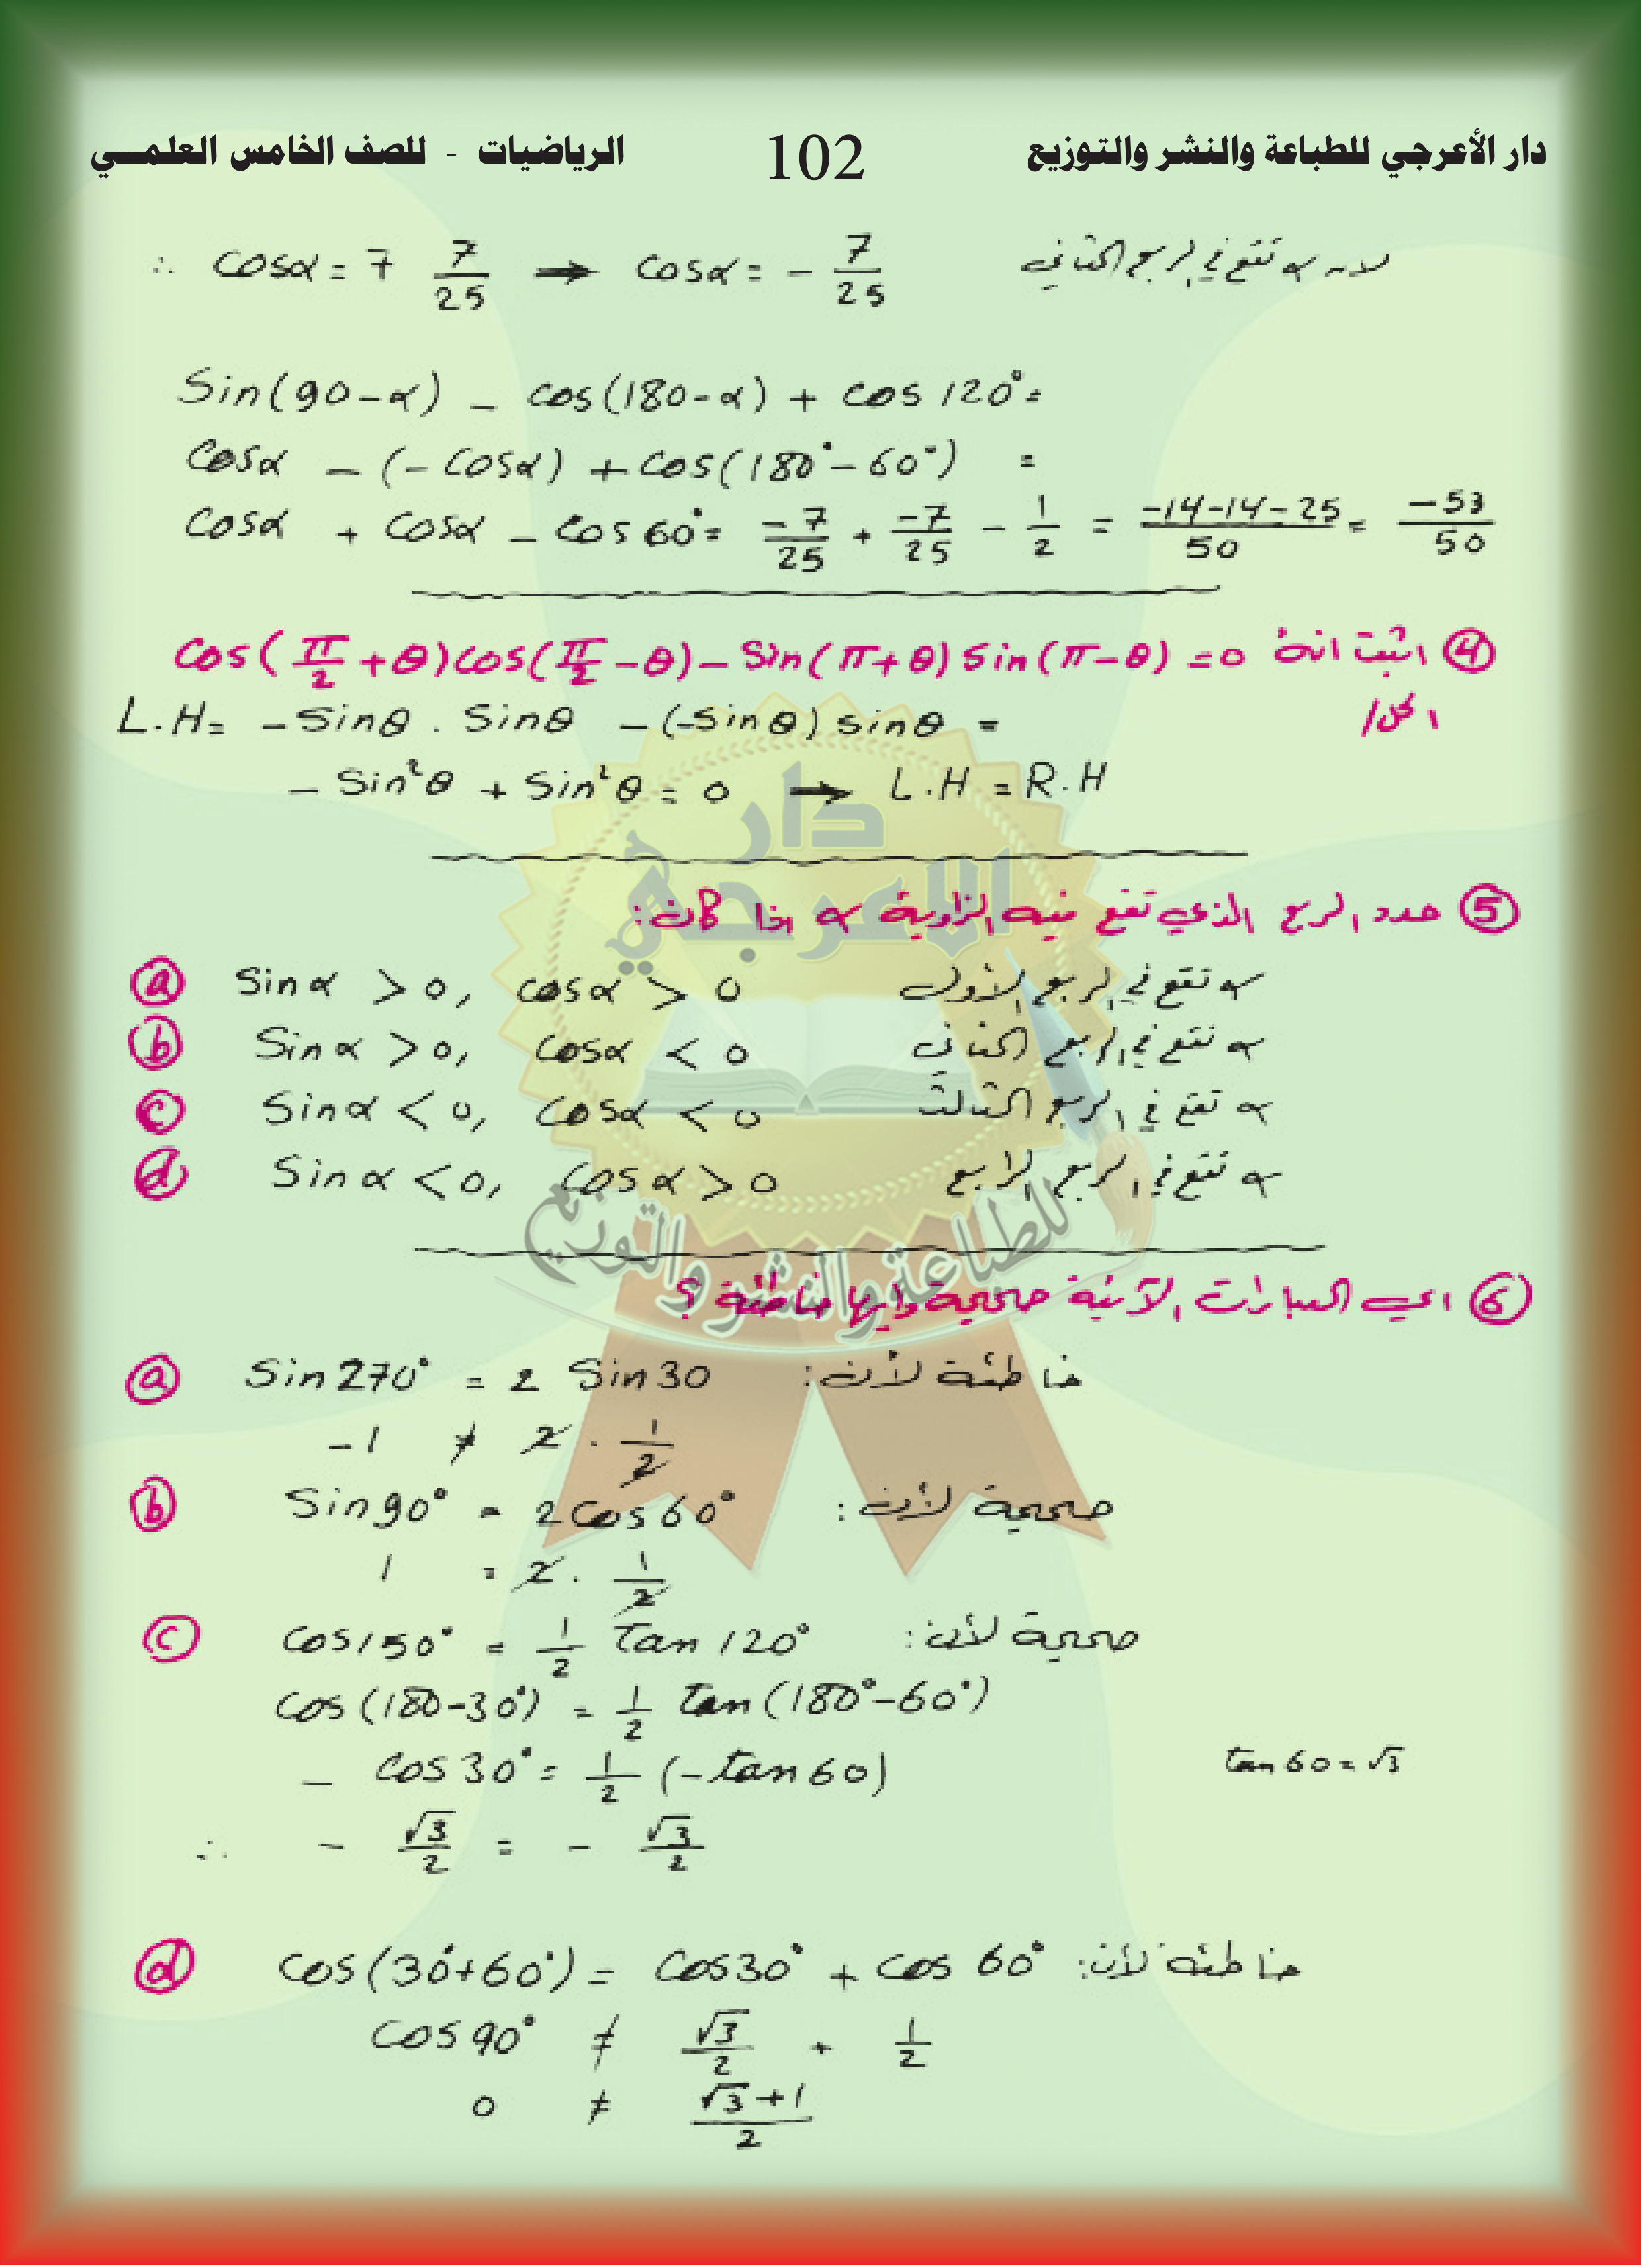 دار الأعرجي للطباعة والنشر والتوزيع 102 الرياضيات - للصف الخامس العلمي
∴ cosα = 7 7/25 → cosα = - 7/25 لان α تقع في الربع الثاني
Sin(90-α) - cos(180-α) + cos 120° =
cosα - (-cosα) + cos(180° - 60°) =
cosα + cosα - cos 60° = -7/25 + -7/25 - 1/2 = -14-14-25/50 = -53/50
④ اثبت انه cos(π/2 + θ) cos(π/2 - θ) - sin(π+θ) sin(π-θ) = 0
الحل/
L.H = - sinθ . sinθ - (-sinθ) sinθ =
- sin²θ + sin²θ = 0 → L.H = R.H
⑤ حدد الربع الذي تقع فيه الزاوية α اذا كان:
ⓐ Sinα > 0, cosα > 0 α تقع في الربع الأول
ⓑ Sinα > 0, cosα < 0 α تقع في الربع الثاني
ⓒ Sinα < 0, cosα < 0 α تقع في الربع الثالث
ⓓ Sinα < 0, cosα > 0 α تقع في الربع الرابع
⑥ اي العبارات الآتية صحيحة وايها خاطئة ؟
ⓐ Sin270° = 2 Sin30 خاطئة لأن:
-1 ≠ 2 . 1/2
ⓑ Sin90° = 2cos60° صحيحة لأن:
1 = 2 . 1/2
ⓒ cos150° = 1/2 tan 120° صحيحة لأن:
cos(180-30°) = 1/2 tan(180°-60°)
- cos30° = 1/2 (-tan60) tan60 = √3
∴ - √3/2 = - √3/2
ⓓ cos(30°+60°) = cos30° + cos 60° خاطئة لأن:
cos90° ≠ √3/2 + 1/2
0 ≠ √3+1/2
دار
الاعرجي
للطباعة والنشر والتوزيع